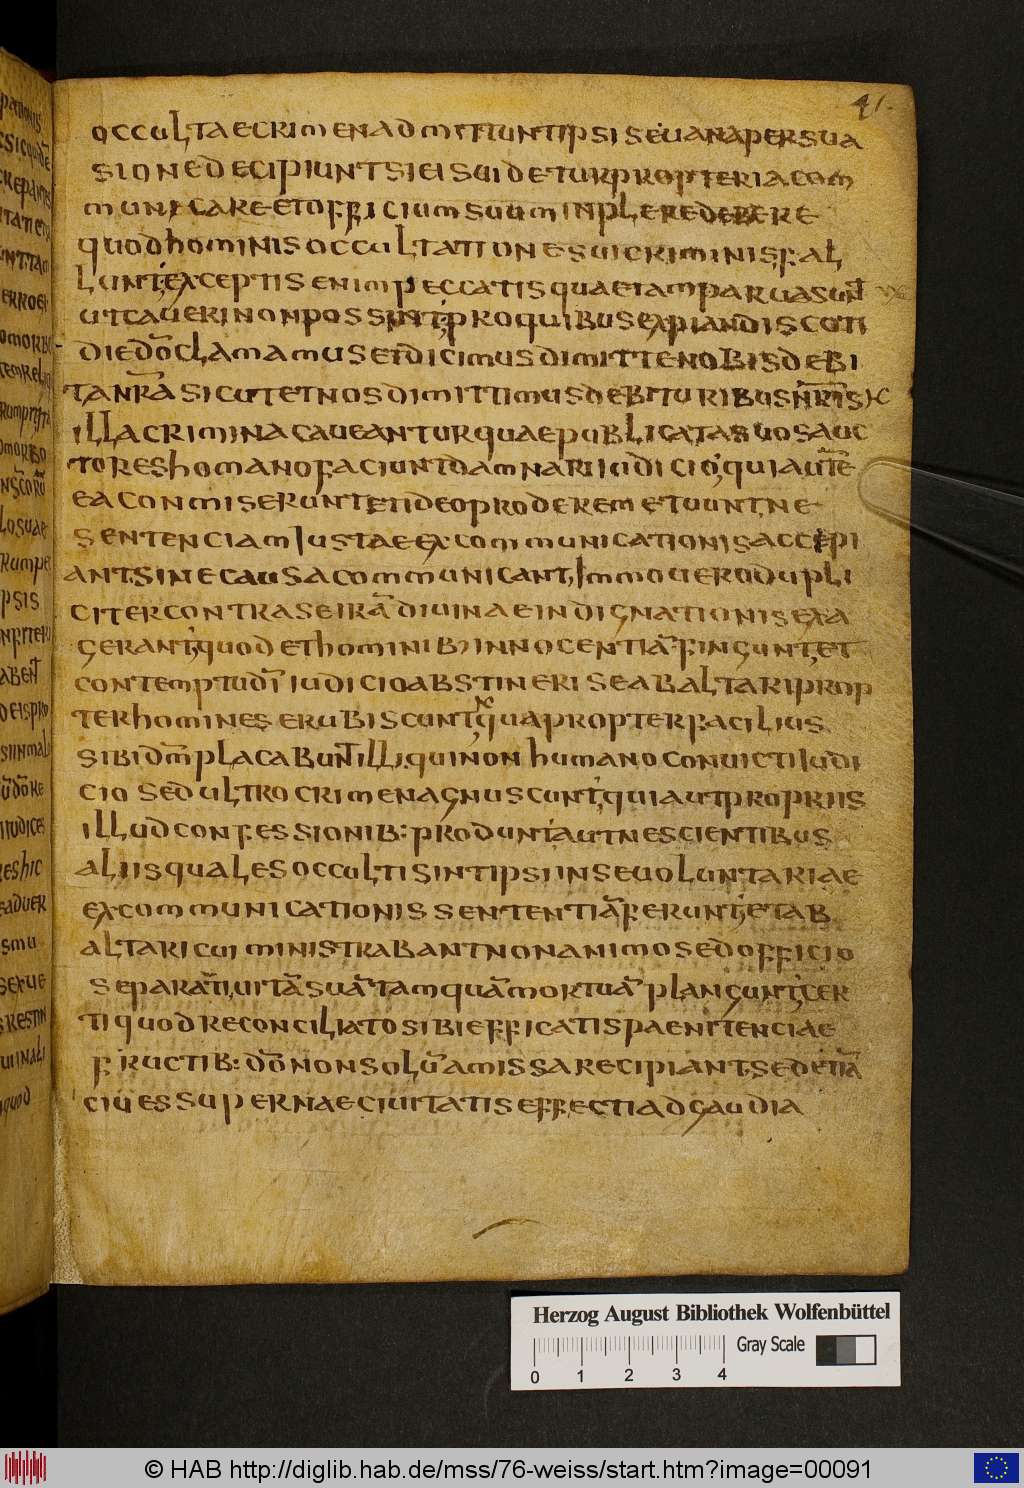 41.
occulta et crimen admittunt ipsi se uana persua
sione decipiunt si eis uidetur propteria com
municare et officium suum inplere debere
quod hominis occultatione sui criminis fal
lunt exceptis enim peccatis quae tam parua sunt
ut caueri non possint pro quibus expiandis coti
die dōm clamamus et dicimus dimitte nobis debi
ta nr̄a sicut et nos dimittimus debituribus nr̄is
illa crimina caueantur quae publicata suos auc
tores homano faciunt damnari iudicio qui autē
ea conmiserunt et ideo prodere metuunt ne
sentenciam iustae excommunicationis accepi
ant sine causa communicant Immo uero dupli
citer contra se irā diuinae indignationis exa
gerant quod et hominib; innocentiā fingunt et
contemptu dī iudicio abstineri se ab altari prop
ter homines erubiscunt qua propter facilius
sibi dm̄ placabunt illi qui non humano conuicti iudi
cio sed ultro crimen agnuscunt qui aut propriis
illud confessionib: produnt aut nescientibus
aliis quales occulti sint ipsi in se uoluntariae
excommunicationis sententiā ferunt et ab
altari cui ministrabant non animo sed officio
separati uitā suā tamquā mortuā plangunt cer
ti quod reconciliato sibi efficatis paenitenciae
fructib: dō non solū amissa recipiant sed etiā
ciues supernae ciuitatis effecti ad gaudia
Herzog August Bibliothek Wolfenbüttel
Gray Scale
0 1 2 3 4
© HAB http://diglib.hab.de/mss/76-weiss/start.htm?image=00091